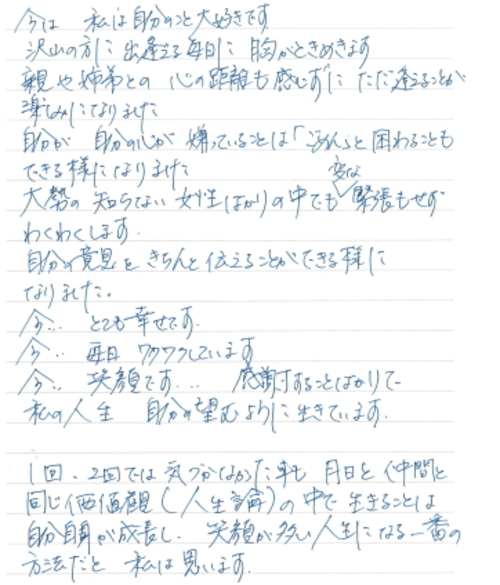 今は 私は自分のこと大好きです
沢山の方に出逢える毎日に 胸がときめきます
親や姉弟との 心の距離も感じずに ただ逢えることが
楽しみになりました
自分が 自分の心が 嫌っていることは「ごめん」と困わることも
できる様になりました
大勢の 知らない 女性ばかりの中でも 変な 緊張もせず
わくわくします.
自分の意見を きちんと伝えることができる様に
なりました。
今... とても幸せです.
今... 毎日 ワクワクしています
今... 笑顔です... 感謝することばかりで
私の人生 自分の望むように生きています.
1回、2回では 気づかなかった事も 月日と 仲間と
同じ価値観(人生論)の中で 生きることは
自分自身が成長し. 笑顔が多い人生になる一番の
方法だと 私は思います.